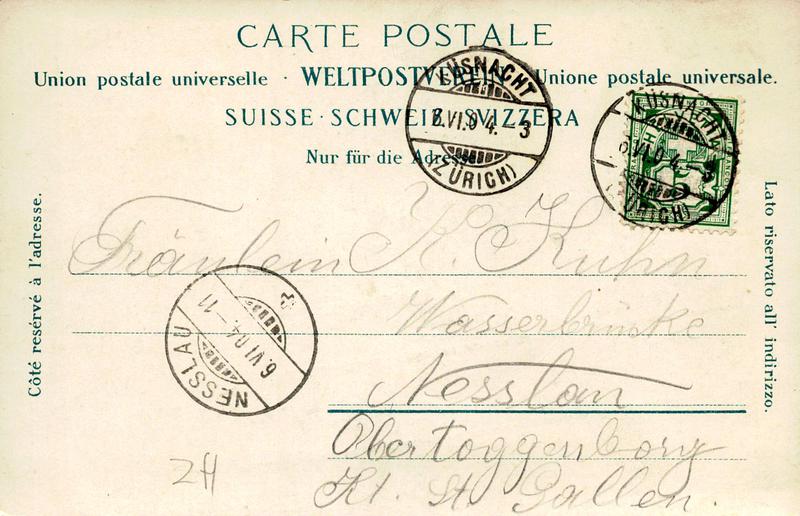 CARTE POSTALE
Union postale universelle · WELTPOSTVEREIN · Unione postale universale.
SUISSE · SCHWEIZ · SVIZZERA
Nur für die Adresse
KÜSNACHT
6.VI.04.-3
(ZÜRICH)
KÜSNACHT
6.VI.04.-3
(ZÜRICH)
Côté resérvé à l'adresse.
Lato riservato all' indirizzo.
Fräulein K. Kuhn
Wasserbrücke
Nesslau
Obertoggenborg
Kt. St. Gallen.
NESSLAU
6.VI.04.-11
ZH